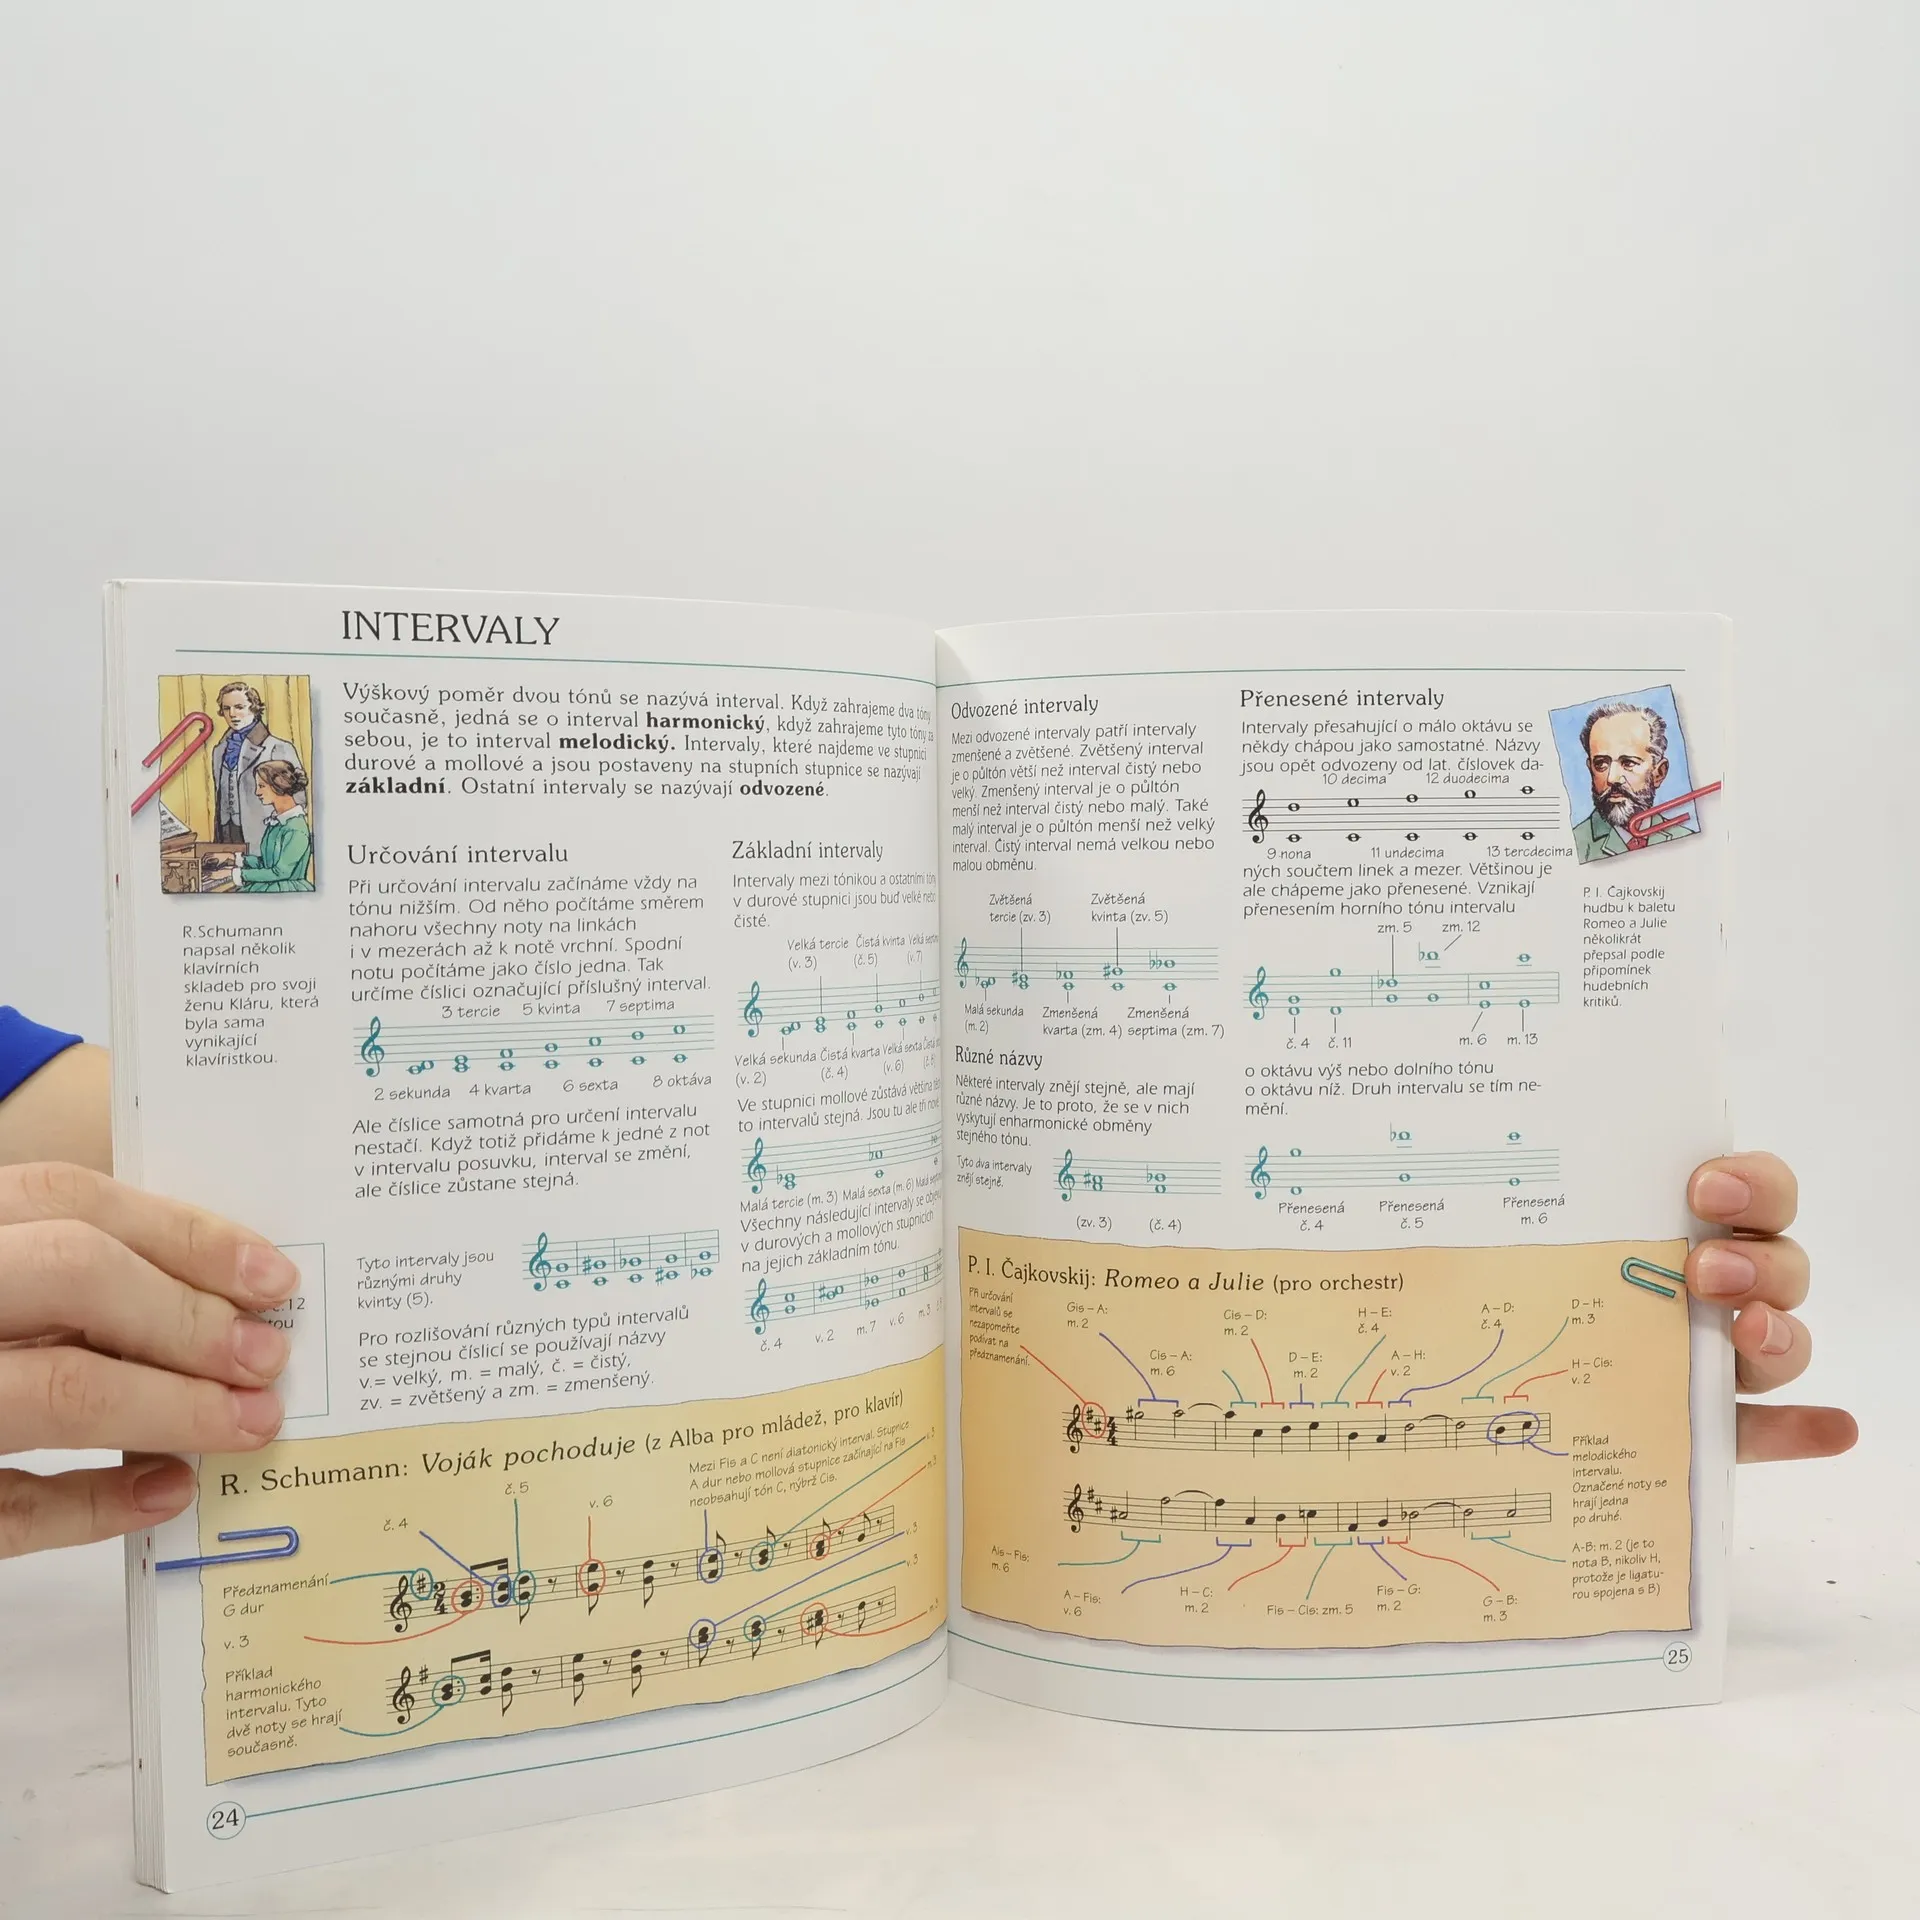 INTERVALY
Výškový poměr dvou tónů se nazývá interval. Když zahrajeme dva tóny
současně, jedná se o interval harmonický, když zahrajeme tyto tóny za
sebou, je to interval melodický. Intervaly, které najdeme ve stupnici
durové a mollové a jsou postaveny na stupních stupnice se nazývají
základní. Ostatní intervaly se nazývají odvozené.
R.Schumann
napsal několik
klavírních
skladeb pro svoji
ženu Kláru, která
byla sama
vynikající
klavíristkou.
Určování intervalu
Při určování intervalu začínáme vždy na
tónu nižším. Od něho počítáme směrem
nahoru všechny noty na linkách
i v mezerách až k notě vrchní. Spodní
notu počítáme jako číslo jedna. Tak
určíme číslici označující příslušný interval.
3 tercie 5 kvinta 7 septima
2 sekunda 4 kvarta 6 sexta 8 oktáva
Ale číslice samotná pro určení intervalu
nestačí. Když totiž přidáme k jedné z not
v intervalu posuvku, interval se změní,
ale číslice zůstane stejná.
Tyto intervaly jsou
různými druhy
kvinty (5).
Pro rozlišování různých typů intervalů
se stejnou číslicí se používají názvy
v.= velký, m. = malý, č. = čistý,
zv. = zvětšený a zm. = zmenšený.
č.12
tou
Základní intervaly
Intervaly mezi tónikou a ostatními
v durové stupnici jsou buď velké nebo
čisté.
Velká tercie Čistá kvinta Velká
(v. 3) (č. 5) (v. 7)
Velká sekunda Čistá kvarta Velká sexta Čistá
(v. 2) (č. 4) (v. 6)
Ve stupnici mollové zůstává většina
to intervalů stejná. Jsou tu ale tři nové
Malá tercie (m. 3) Malá sexta (m. 6) Malá
Všechny následující intervaly se
v durových a mollových stupnicích
na jejich základním tónu.
č. 4 v. 2 m. 7 v. 6 m. 3
R. Schumann: Voják pochoduje (z Alba pro mládež, pro klavír)
Mezi Fis a C není diatonický interval. Stupnice
A dur nebo mollová stupnice začínající na Fis
neobsahují tón C, nýbrž Cis.
č. 4
č. 5
v. 6
v. 3
m. 3
Předznamenání
G dur
2
4
v. 3
v. 3
v. 3
Příklad
harmonického
intervalu. Tyto
dvě noty se hrají
současně.
m. 3
24
Odvozené intervaly
Mezi odvozené intervaly patří intervaly
zmenšené a zvětšené. Zvětšený interval
je o půltón větší než interval čistý nebo
velký. Zmenšený interval je o půltón
menší než interval čistý nebo malý. Také
malý interval je o půltón menší než velký
interval. Čistý interval nemá velkou nebo
malou obměnu.
Zvětšená Zvětšená
tercie (zv. 3) kvinta (zv. 5)
Malá sekunda Zmenšená Zmenšená
(m. 2) kvarta (zm. 4) septima (zm. 7)
Různé názvy
Některé intervaly znějí stejně, ale mají
různé názvy. Je to proto, že se v nich
vyskytují enharmonické obměny
stejného tónu.
Tyto dva intervaly
znějí stejně.
(zv. 3) (č. 4)
Přenesené intervaly
Intervaly přesahující o málo oktávu se
někdy chápou jako samostatné. Názvy
jsou opět odvozeny od lat. číslovek da-
10 decima 12 duodecima
9 nona 11 undecima 13 tercdecima
ných součtem linek a mezer. Většinou je
ale chápeme jako přenesené. Vznikají
přenesením horního tónu intervalu
zm. 5 zm. 12
č. 4 č. 11 m. 6 m. 13
o oktávu výš nebo dolního tónu
o oktávu níž. Druh intervalu se tím ne-
mění.
Přenesená Přenesená Přenesená
č. 4 č. 5 m. 6
P. I. Čajkovskij
hudbu k baletu
Romeo a Julie
několikrát
přepsal podle
připomínek
hudebních
kritiků.
P. I. Čajkovskij: Romeo a Julie (pro orchestr)
Při určování
intervalů se
nezapomeňte
podívat na
předznamenání.
Gis – A:
m. 2
Cis – A:
m. 6
Cis – D:
m. 2
D – E:
m. 2
H – E:
č. 4
A – H:
v. 2
A – D:
č. 4
D – H:
m. 3
H – Cis:
v. 2
4
4
Příklad
melodického
intervalu.
Označené noty se
hrají jedna
po druhé.
Ais – Fis:
m. 6
A – Fis:
v. 6
H – C:
m. 2
Fis – Cis: zm. 5
Fis – G:
m. 2
G – B:
m. 3
A-B: m. 2 (je to
nota B, nikoliv H,
protože je ligatu-
rou spojena s B)
25